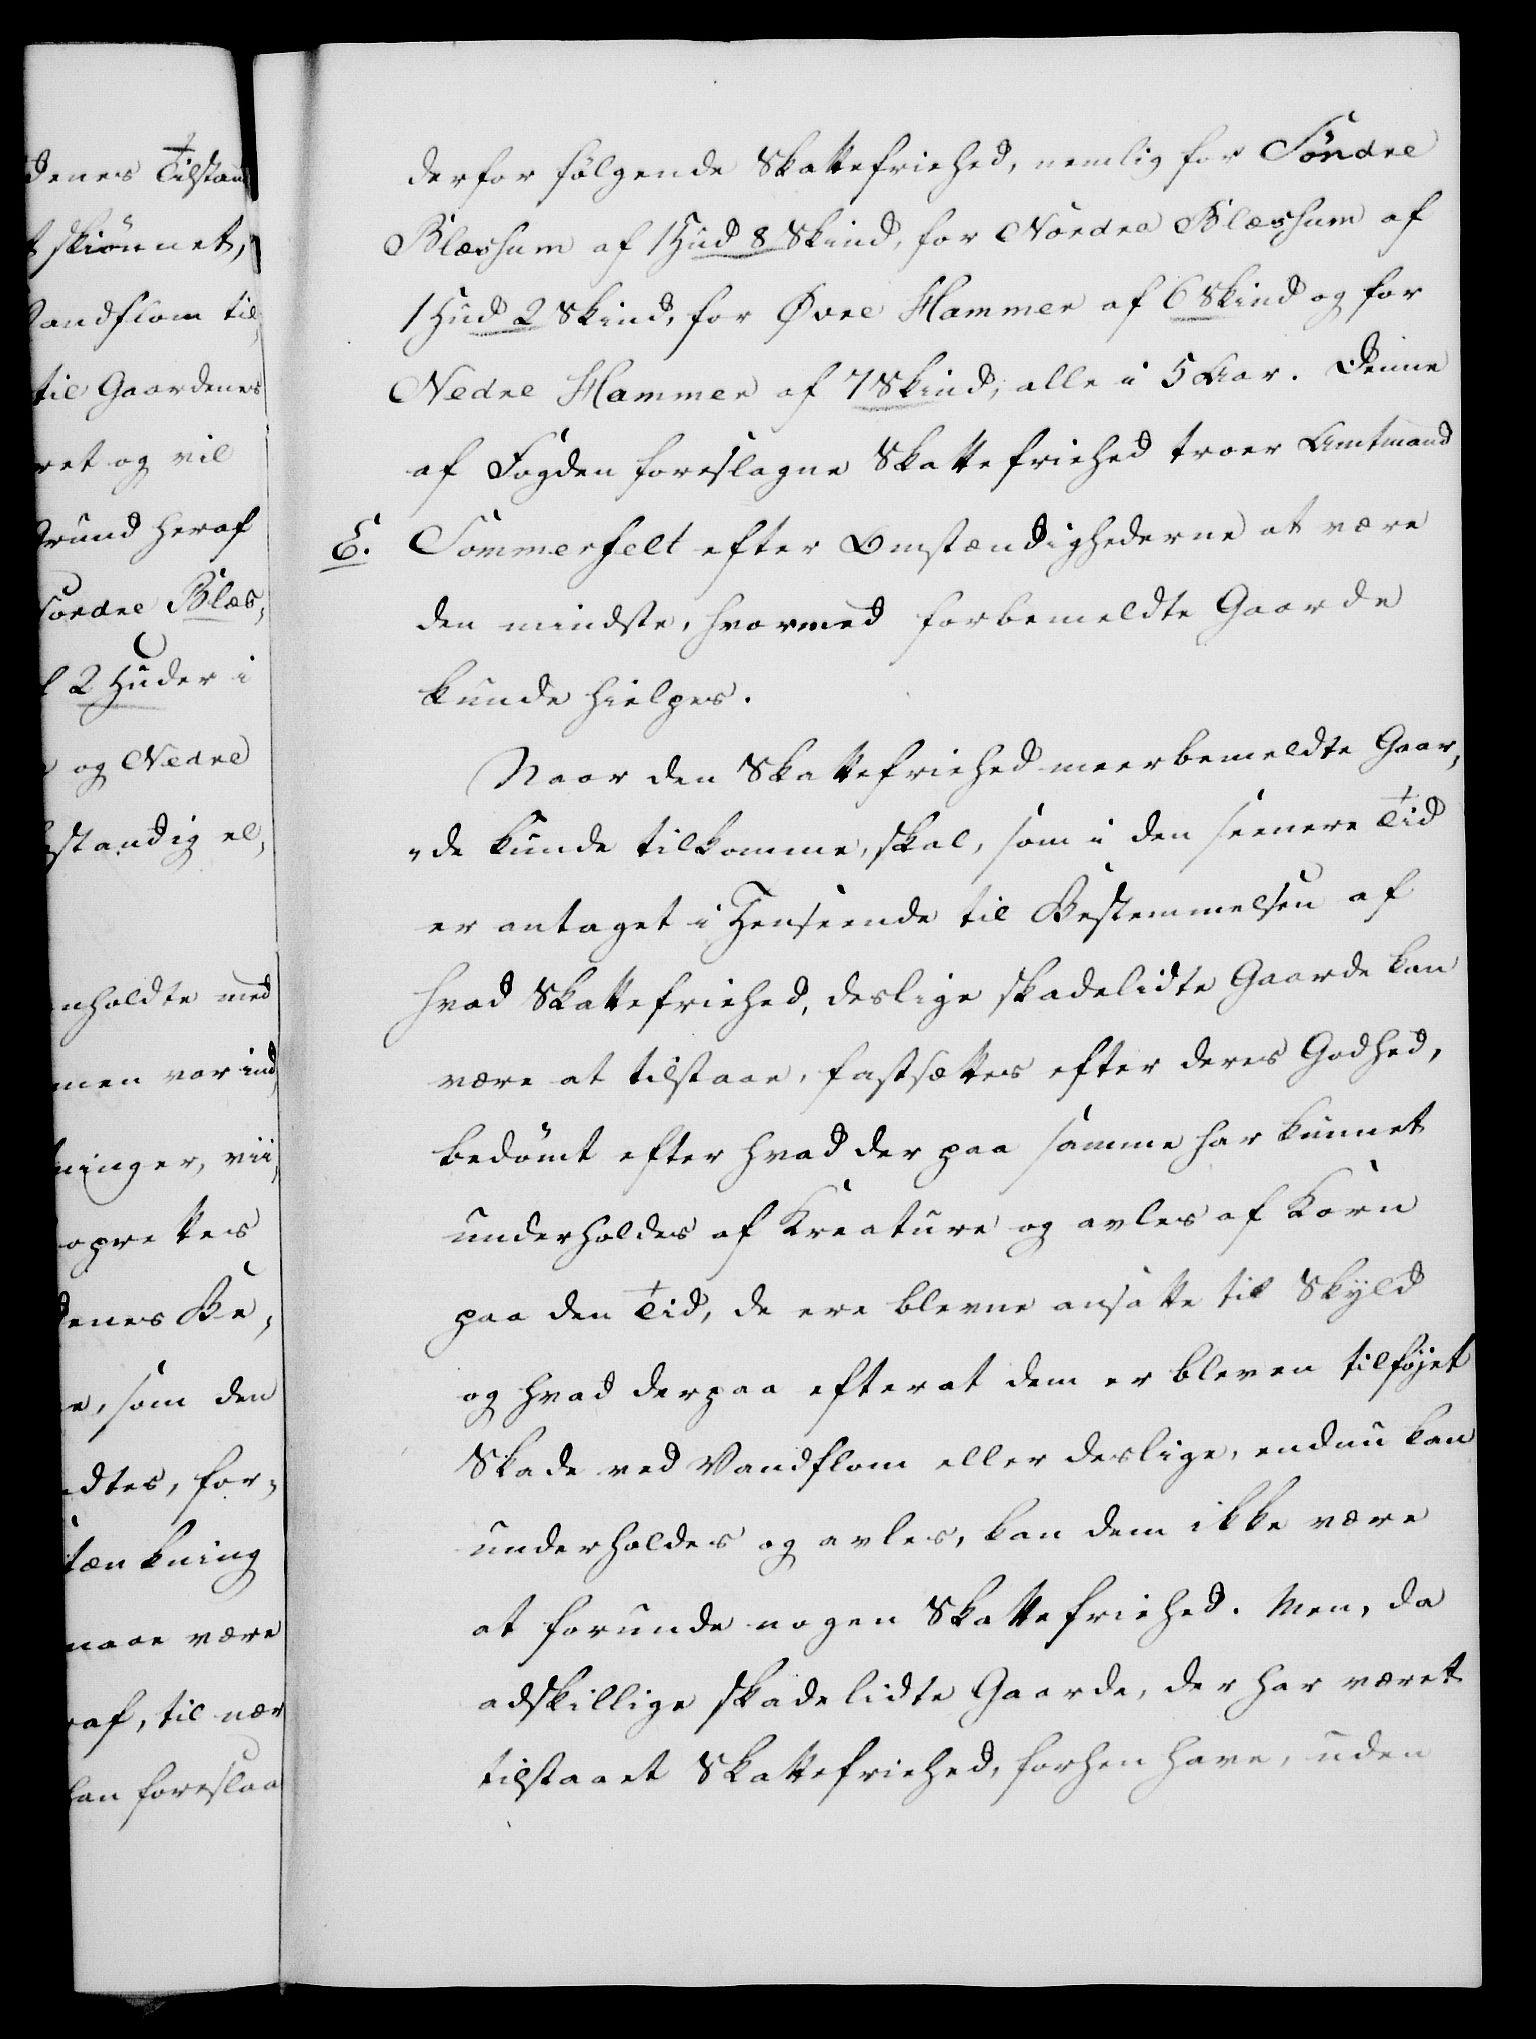 denes Tilstan
t skiönnet,
andflom til
til Gaardenes
ret og vil
Grund heraf
Søndre Blæs,
l 2 Huder i
og Nedre
standig el,
nholdte med
men var ind
ninger, vii,
oprettes
denes Be,
e, som den
dtes, for,
tænkning
maae være
af, til nær
han foreslaa
derfor følgende Skattefriehed, nemlig for Söndre
Blæshum af 1 Hud 8 Skind, for Nordre Blæshum af
1 Hud 2 Skind, for Øvre Hammer af 6 Skind og for
Nedre Hammer af 7 Skind, alle i 5 Aar. Denne
af Fogden foreslagne Skattefriehed troer Amtmand
E. Sommerfelt efter Omstændighederne at være
den mindste, hvormed forbemeldte Gaarde
kunde hielpes.
Naar den Skattefriehed meerbemeldte Gaar,
„de kunde tilkomme, skal, som i den seenere Tid
er antaget i Henseende til Bestemmelsen af
hvad Skattefriehed, deslige skadelidte Gaarde kan
være at tilstaae, fastsættes efter deres Godhed,
bedömt efter hvad der paa samme har kunnet
underholdes af Kreature og avles af Korn
paa den Tid, de ere blevne ansatte til Skyld
og hvad derpaa efterat dem er bleven tilföjet
Skade ved Vandflom eller deslige, endnu kan
underholdes og avles, kan dem ikke være
at forunde nogen Skattefriehed. Men, da
adskillige skadelidte Gaarde, der har været
tilstaaet Skattefriehed, forhen have, uden